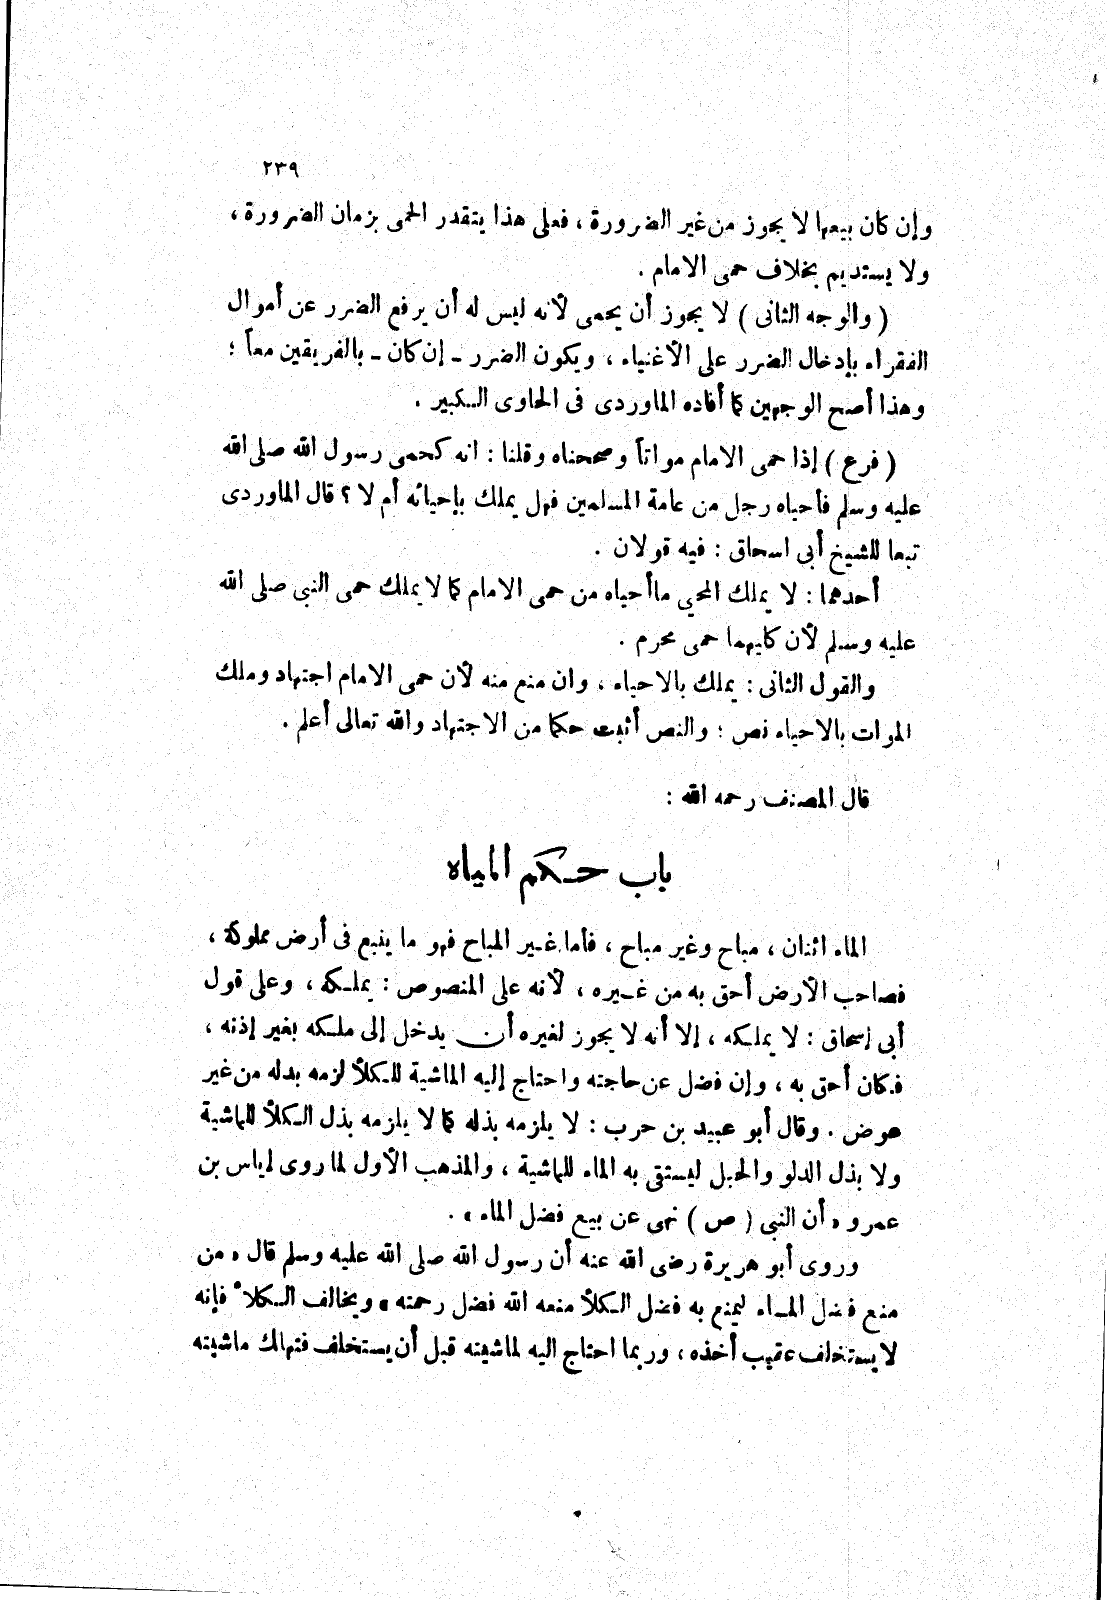 ٢٣٩
وإن كان بيعها لا يجوز من غير الضرورة ، فعلى هذا يتقدر الحمى بزمان الضرورة ،
ولا يستديم بخلاف حمى الامام .
( والوجه الثانى ) لا يجوز أن يحمى لأنه ليس له أن يرفع الضرر عن أموال
الفقراء بإدخال الضرر على الأغنياء ، ويكون الضرر ـ إن كان ـ بالفريقين معاً ؛
وهذا أصح الوجهين كما أفاده الماوردى فى الحاوى الكبير .
( فرع ) إذا حمى الامام مواتاً وصححناه وقلنا : انه كحمى رسول الله صلى الله
عليه وسلم فأحياه رجل من عامة المسلمين فهل يملك بإحيائه أم لا ؟ قال الماوردى
تبعا للشيخ أبى اسحاق : فيه قولان .
أحدهما : لا يملك المحيي ما أحياه من حمى الامام كما لا يملك حمى النبى صلى الله
عليه وسلم لأن كليهما حمى محرم .
والقول الثانى : يملك بالاحياء ، وان منع منه لأن حمى الامام اجتهاد وملك
الموات بالاحياء نص ؛ والنص أثبت حكما من الاجتهاد والله تعالى أعلم .
قال المصنف رحمه الله :
باب حكم المياه
الماء اثنان ، مباح وغير مباح ، فأما غير المباح فهو ما ينبع فى أرض مملوكة ،
فصاحب الأرض أحق به من غيره ، لأنه على المنصوص : يملكه ، وعلى قول
أبى إسحاق : لا يملكه ، إلا أنه لا يجوز لغيره أن يدخل إلى ملكه بغير إذنه ،
فكان أحق به ، وإن فضل عن حاجته واحتاج إليه الماشية للكلأ لزمه بذله من غير
عوض . وقال أبو عبيد بن حرب : لا يلزمه بذله كما لا يلزمه بذل الكلأ للماشية
ولا بذل الدلو والحبل ليستقى به الماء للماشية ، والمذهب الأول لما روى إياس بن
عمرو « أن النبى ( ص ) نهى عن بيع فضل الماء » .
وروى أبو هريرة رضى الله عنه أن رسول الله صلى الله عليه وسلم قال « من
منع فضل الماء ليمنع به فضل الكلأ منعه الله فضل رحمته » ويخالف الكلأ فإنه
لا يستخلف عقيب أخذه ، وربما احتاج اليه لماشيته قبل أن يستخلف فتهلك ماشيته